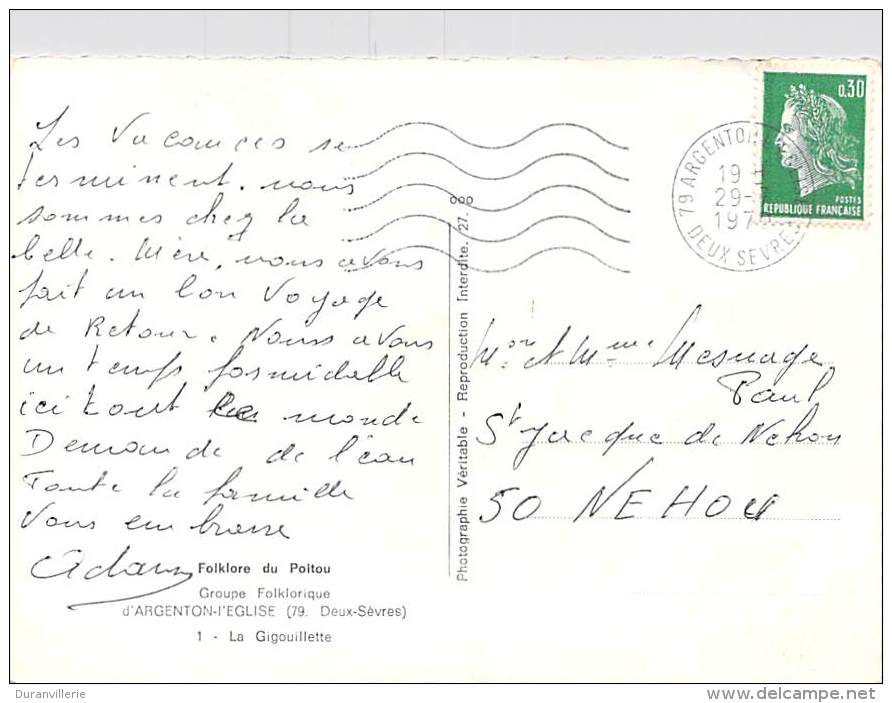 Les Vacances se
terminent. nous
sommes chez la
belle. Mère, nous avons
fait un bon Voyage
de Retour. Nous avons
un temps formidable
ici tout le monde
Demande de l'eau
Toute la famille
Vous embrasse
Adam
Folklore du Poitou
Groupe Folklorique
d'ARGENTON-l'EGLISE (79. Deux-Sèvres)
1 - La Gigouillette
Photographie Véritable - Reproduction Interdite. /27.
000
0,30
POSTES
REPUBLIQUE FRANÇAISE
79 ARGENTON
19
29-
197
DEUX SEVRES
Mon et Mme Mesnage
Paul
St Jacque de Nehou
50 NEHOU
Duranvillerie
delcampe.net